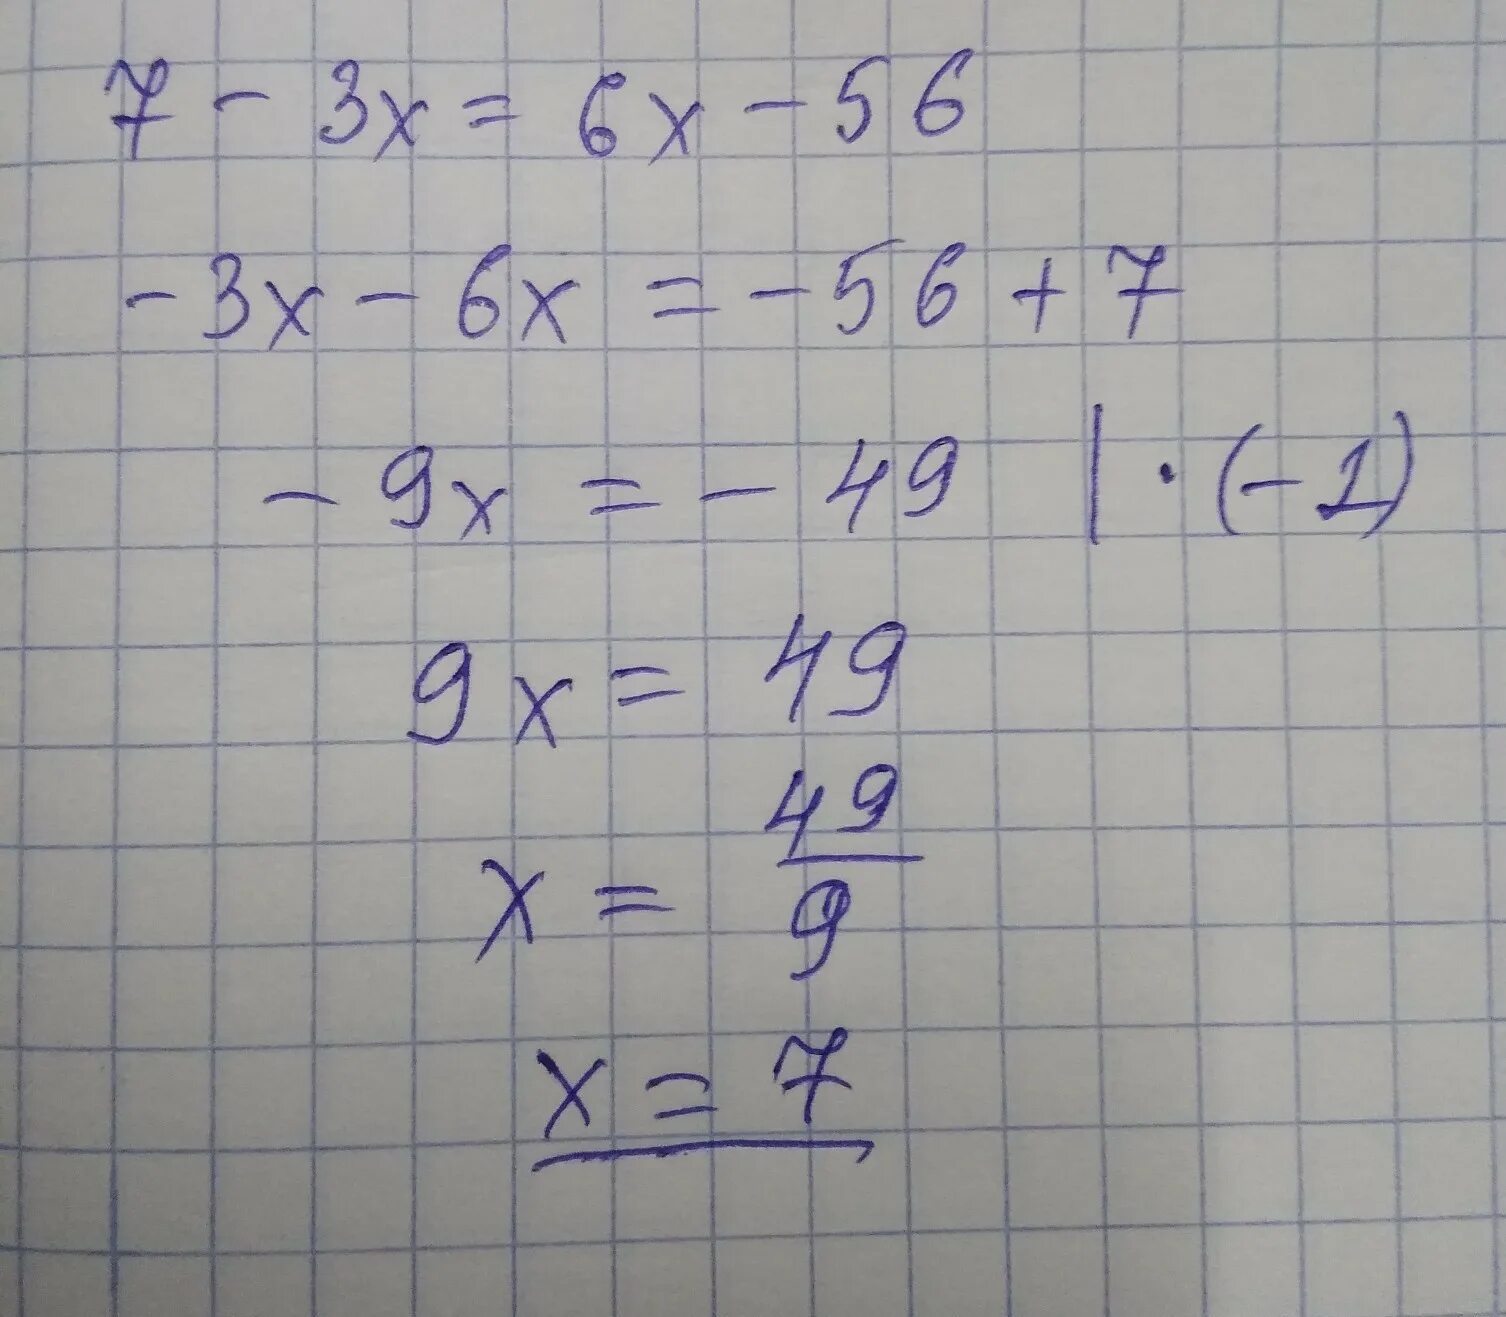 7 - 3x = 6x - 56
-3x - 6x = -56 + 7
-9x = -49 | · (-1)
9x = 49
x = 49/9
x = 7